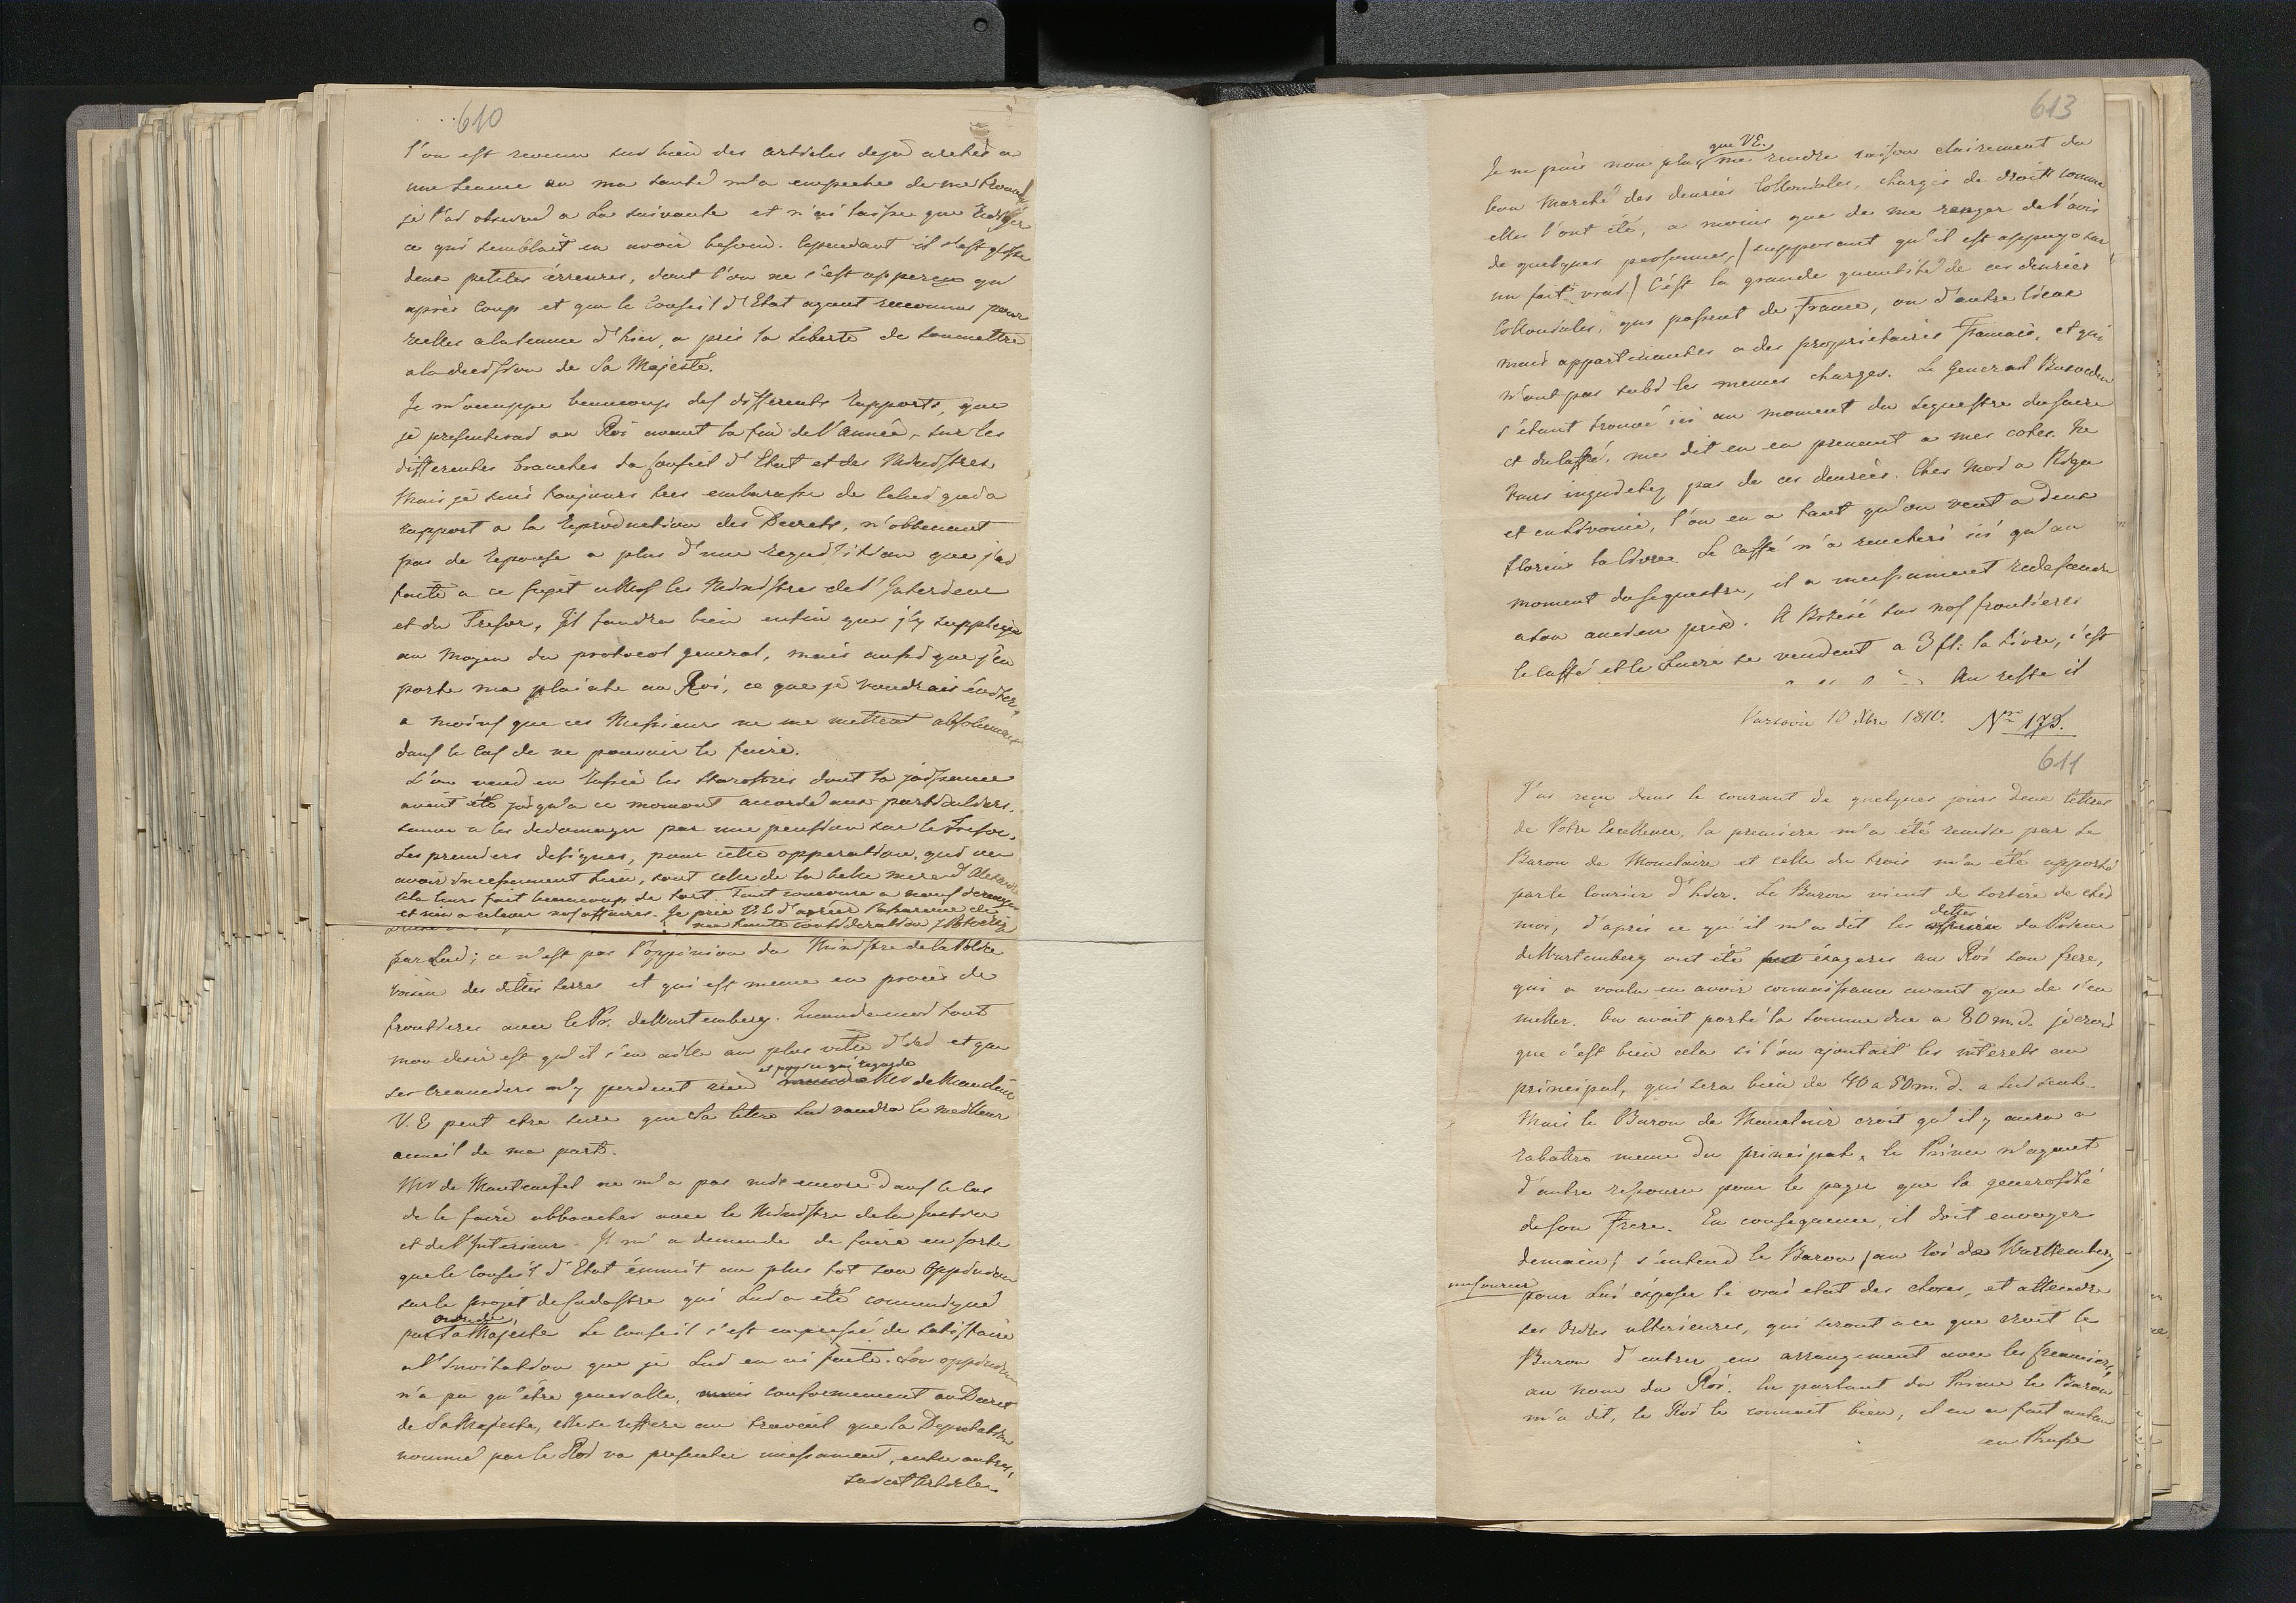 610
l'on est revenu sur bien des articles dejà aretés a
une seance ou ma santé m'a empechée de me trouver
je l'ai observé a la suivante et n'ai laissé que
ce qui semblait en avoir besoin. Cependant il s'est glissé
deux petites érreures, dont l'on ne s'est apperçu qu'
après coup et que le Conseil d'Etat ayant reconnus pour
réelles a la seance d'hier, a pris la liberté de soumettre
a la decission de Sa Majesté.
Je m'occuppe beaucoup des differents rapports, que
je presenterai au Roi avant la fin de l'Année, sur les
differentes branches du Conseil d'Etat et des Ministres
Mais je suis toujours tres embarassé de celui qui a
rapport a la reproduction des Decrets, n'obtenant
pas de reponse a plus d'une requisition que j'ai
faite a ce sujet a Mess les Ministres de l'Interieur
et du Tresor, Il faudra bien enfin que j'y supplée
au moyen du protocol general, mais aussi que j'en
porte ma plainte au Roi, ce que je voudrais éviter,
a moins que ces Messieurs ne me mettent absolument
dans le cas de ne pouvoir le faire.
L'on vend en Russie les Starosties dont la joissance
avait été jusqu'a ce moment accordé aux particuliers,
sauve a les dedomager par une pension sur le Tresor.
Les premiers designes, pour cette opperation, qui va
avoir incessament lieu, sont celle de la belle mere d'
cela leurs fait beaucoup de tort. Tout concoure a nous deranger
et rien a relever nos affaires. Je prie V.E d'agréer l'assurance de
ma haute consideration
par Lui; ce n'est pas l'oppinion du Ministre de la Police
voisin des dittes terres et qui est meme en procès de
frontieres avec le Pr. de Wurtemberg. Quand a moi tout
mon desir est qu'il s'en aille au plus vite d'ici et que
et pour ce qui regarde
ses creanciers n'y perdent rien Mr de
V.E peut etre sure que Sa lettre lui vaudra le meilleur
acceuil de ma part.
Mr de Manteuffel ne m'a pas mis encore dans le cas
de le faire abboucher avec le Ministre de la Justice
et de l'Interieur. Il m'a demandé de faire en sorte
que le Conseil d'Etat émmit au plus tot son Oppinion
sur le projet de Cadastre qui Lui a été comuniqué
par Sa Majesté Le Conseil s'est empressé de satisfaire
a l'Invitation que je Lui en ai faite. Son oppinion
n'a pu qu'être generalle, conformement au Decret
de Sa Majesté, elle se reffere au travail que la Deputation
nommé par le Roi va presenter incessament, entre autres,
sur cet Article.
613
que V.E.
Je ne puis non plus me rendre raison clairement du
bon Marché des denrées Collonialles, chargés de droits comme
elles l'ont été, a moins que de me ranger de l'avis
de quelques personnes, / supposant qu'il est appuyé sur
un fait vrai / C'est la grande quantité de ces denrées
Collonialles, qui passent de France, ou d'autre lieux
mais appartenantes a des proprietaires Francais, et qui
n'ont pas subi les memes charges. Le General
s'étant trouvé ici au moment du sequestre du sucre
et du Caffé, me dit en en prenant a mes cotés. Ne
vous inquietez pas de ces denrées. Chez Moi a Riga
et en Livonie, l'on en a tant qu'on veut a deux
florins la Livre. Le Caffé n'a rencheri ici qu'au
moment du sequestre, il a incessament redescendu
a son ancien prix. A sur nos frontieres
le Caffé et le Sucre se vendent a 3 fl: la Livre, c'est
Au reste il
Varsovie 10 Xbre 1810. Nro 173.
611
J'ai reçu dans le courant de quelques jours deux lettres
de Votre Excellence, la premiere m'a été remise par le
Baron de Mouclaire et celle du trois m'a été apporté
par le courier d'hier. Le Baron vient de sortire de chés
dettes
moi, d'aprés ce qu'il m'a dit les affaires du Prince
de Wurtemberg ont été éxageres au Roi son frere,
qui a voulu en avoir connaissance avant que de s'en
meller. On avait porté la somme due a 80 m. d. je crois
que c'est bien cela si l'on ajoutait les interets au
principal, qui sera bien de 40 a 50 m. d. a lui seul.
Mais le Baron de Mouclair croit qu'il y aura a
rabattre meme du principal, le Prince n'ayant
d'autre ressource pour le payer que la generosité
de son Frere. En consequence, il doit envoyer
demain / s'entend le Baron / au Roi de Wurttemberg
un Courier pour Lui éxposer le vrai etat des choses, et attendre
ses Ordres ulterieures, qui seront a ce que croit le
Baron d'entrer en arrangement avec les creanciers,
au nom du Roi. En parlant du Prince le Baron
m'a dit, le Roi le connait bien, il en a fait autant
en Prusse